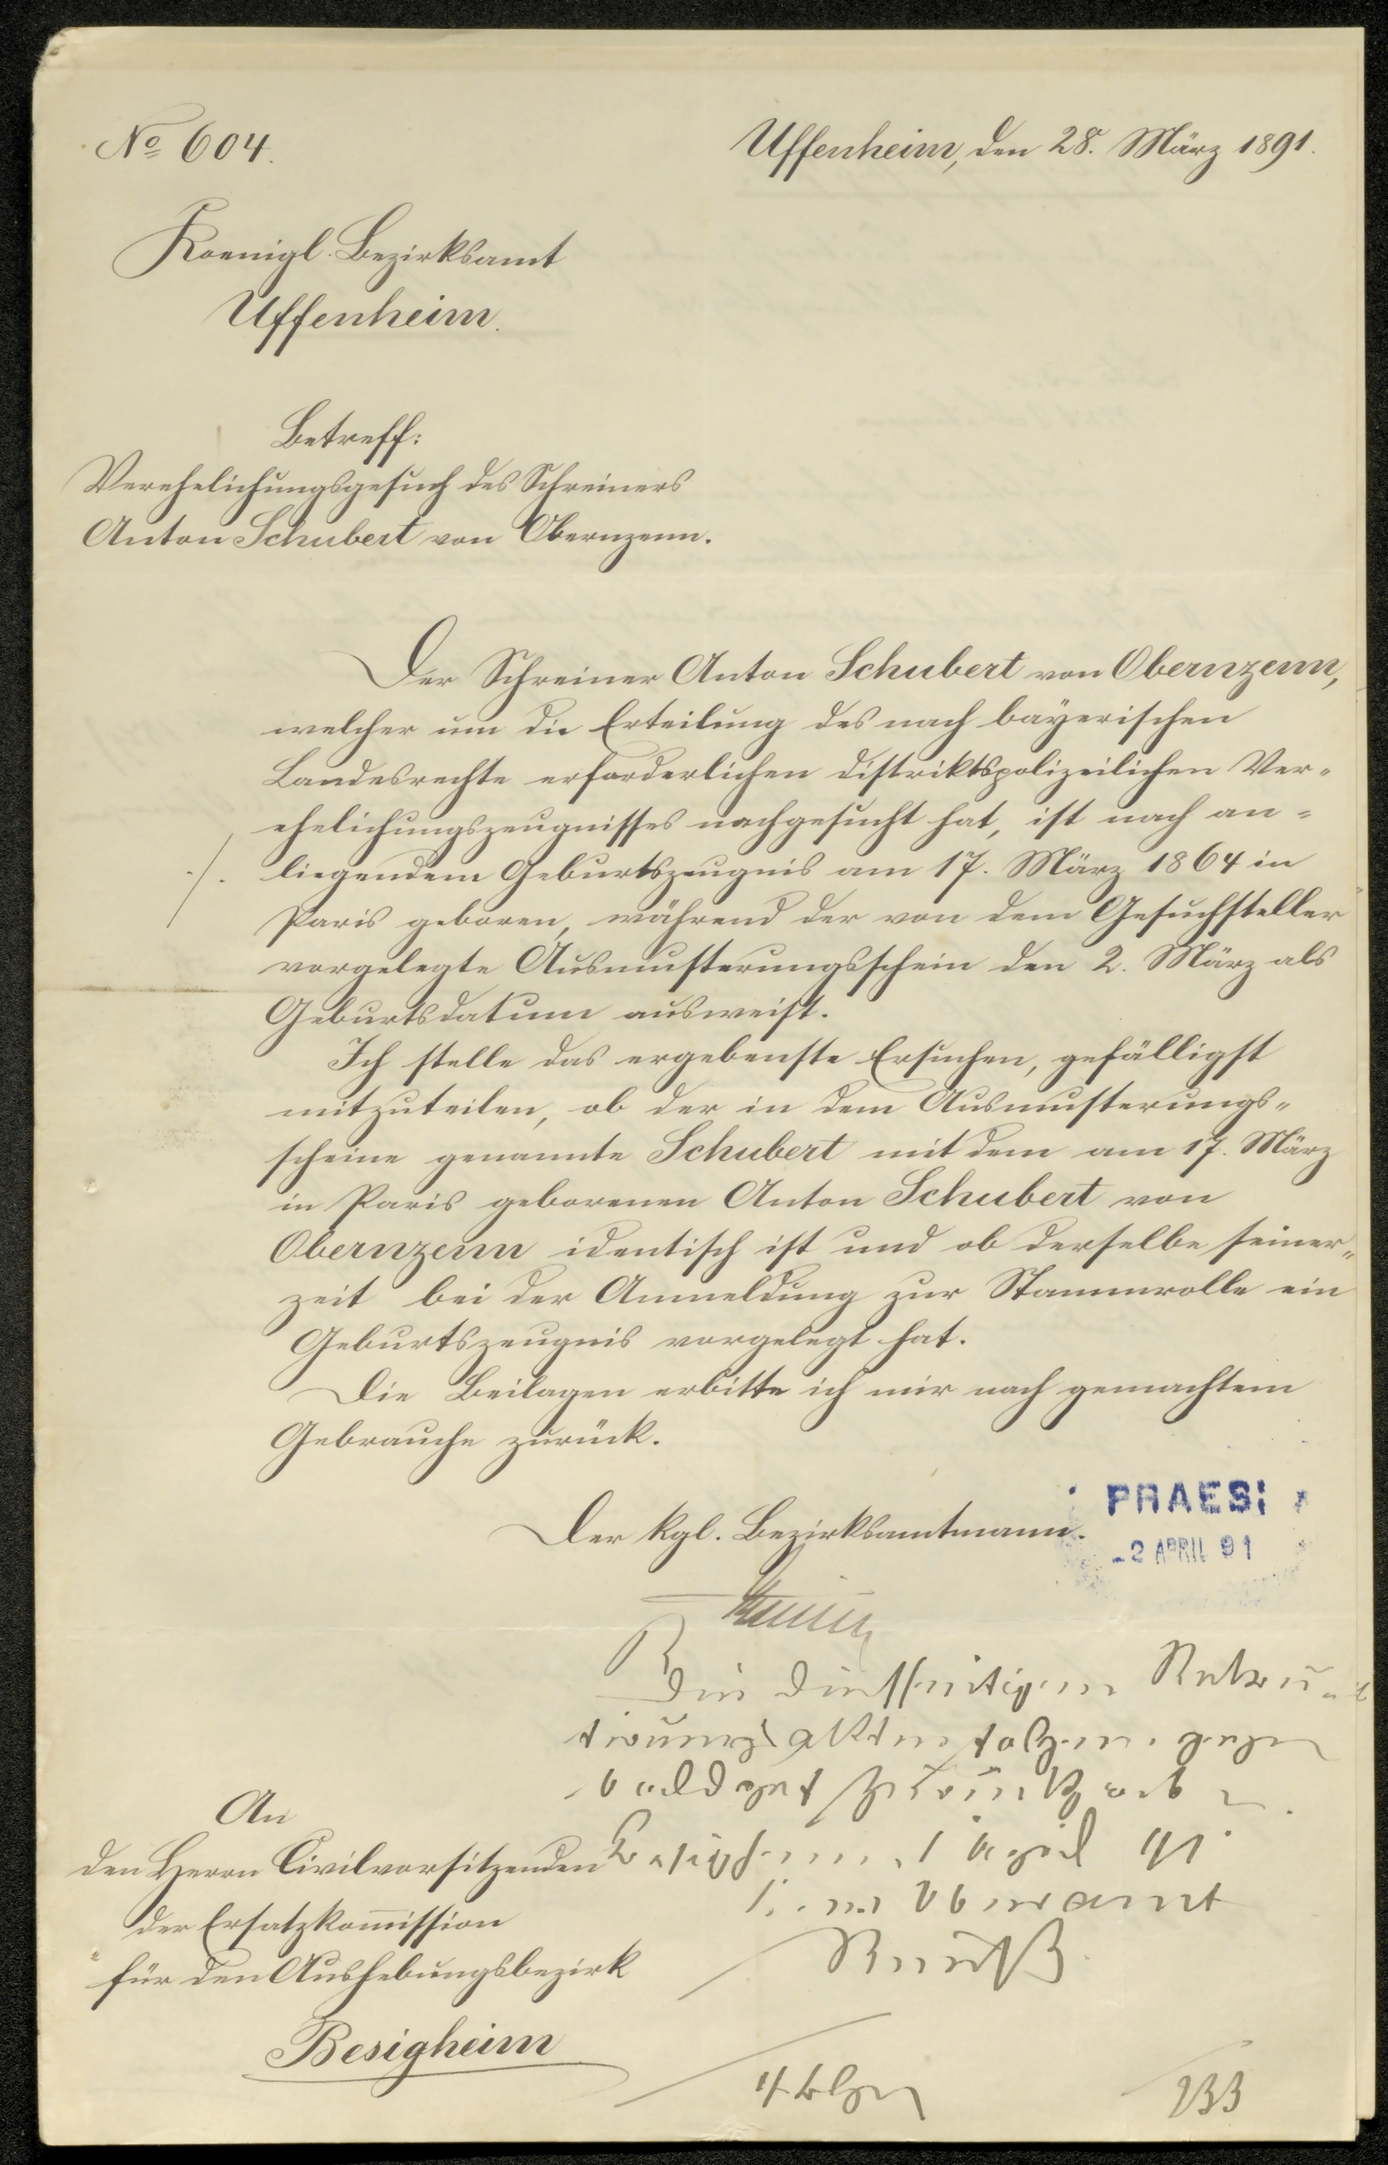 № 604.
Uffenheim, den 28. März 1891.
Koenigl. Bezirksamt
Uffenheim.
Betreff:
Verehelichungsgesuch des Schreiners
Anton Schubert von Obernzenn.
Der Schreiner Anton Schubert von Obernzenn,
welcher um die Erteilung des nach bayerischen
Landesrechte erforderlichen distriktspolizeilichen Ver-
ehelichungszeugnisses nachgesucht hat, ist nach an-
./. liegendem Geburtszeugnis am 17. März 1864 in
Paris geboren, während der von dem Gesuchsteller
vorgelegte Ausmusterungsschein den 2. März als
Geburtsdatum ausweist.
Ich stelle das ergebenste Ersuchen, gefälligst
mitzuteilen, ob der in dem Ausmusterungs-
scheine genannte Schubert mit dem am 17. März
in Paris geborenen Anton Schubert von
Obernzenn identisch ist und ob derselbe seiner-
zeit bei der Anmeldung zur Stammrolle ein
Geburtszeugnis vorgelegt hat.
Die Beilagen erbitte ich mir nach gemachtem
Gebrauche zurück.
Der kgl. Bezirksamtmann.
PRAES:
- 2 APRIL 91
Die diesseitigen Rekru-
tirungsakten folgen gegen
An
den Herrn Civilvorsitzenden
der Ersatzkom̄ission
für den Aushebungsbezirk
Besigheim
April 91
Oberamt
233